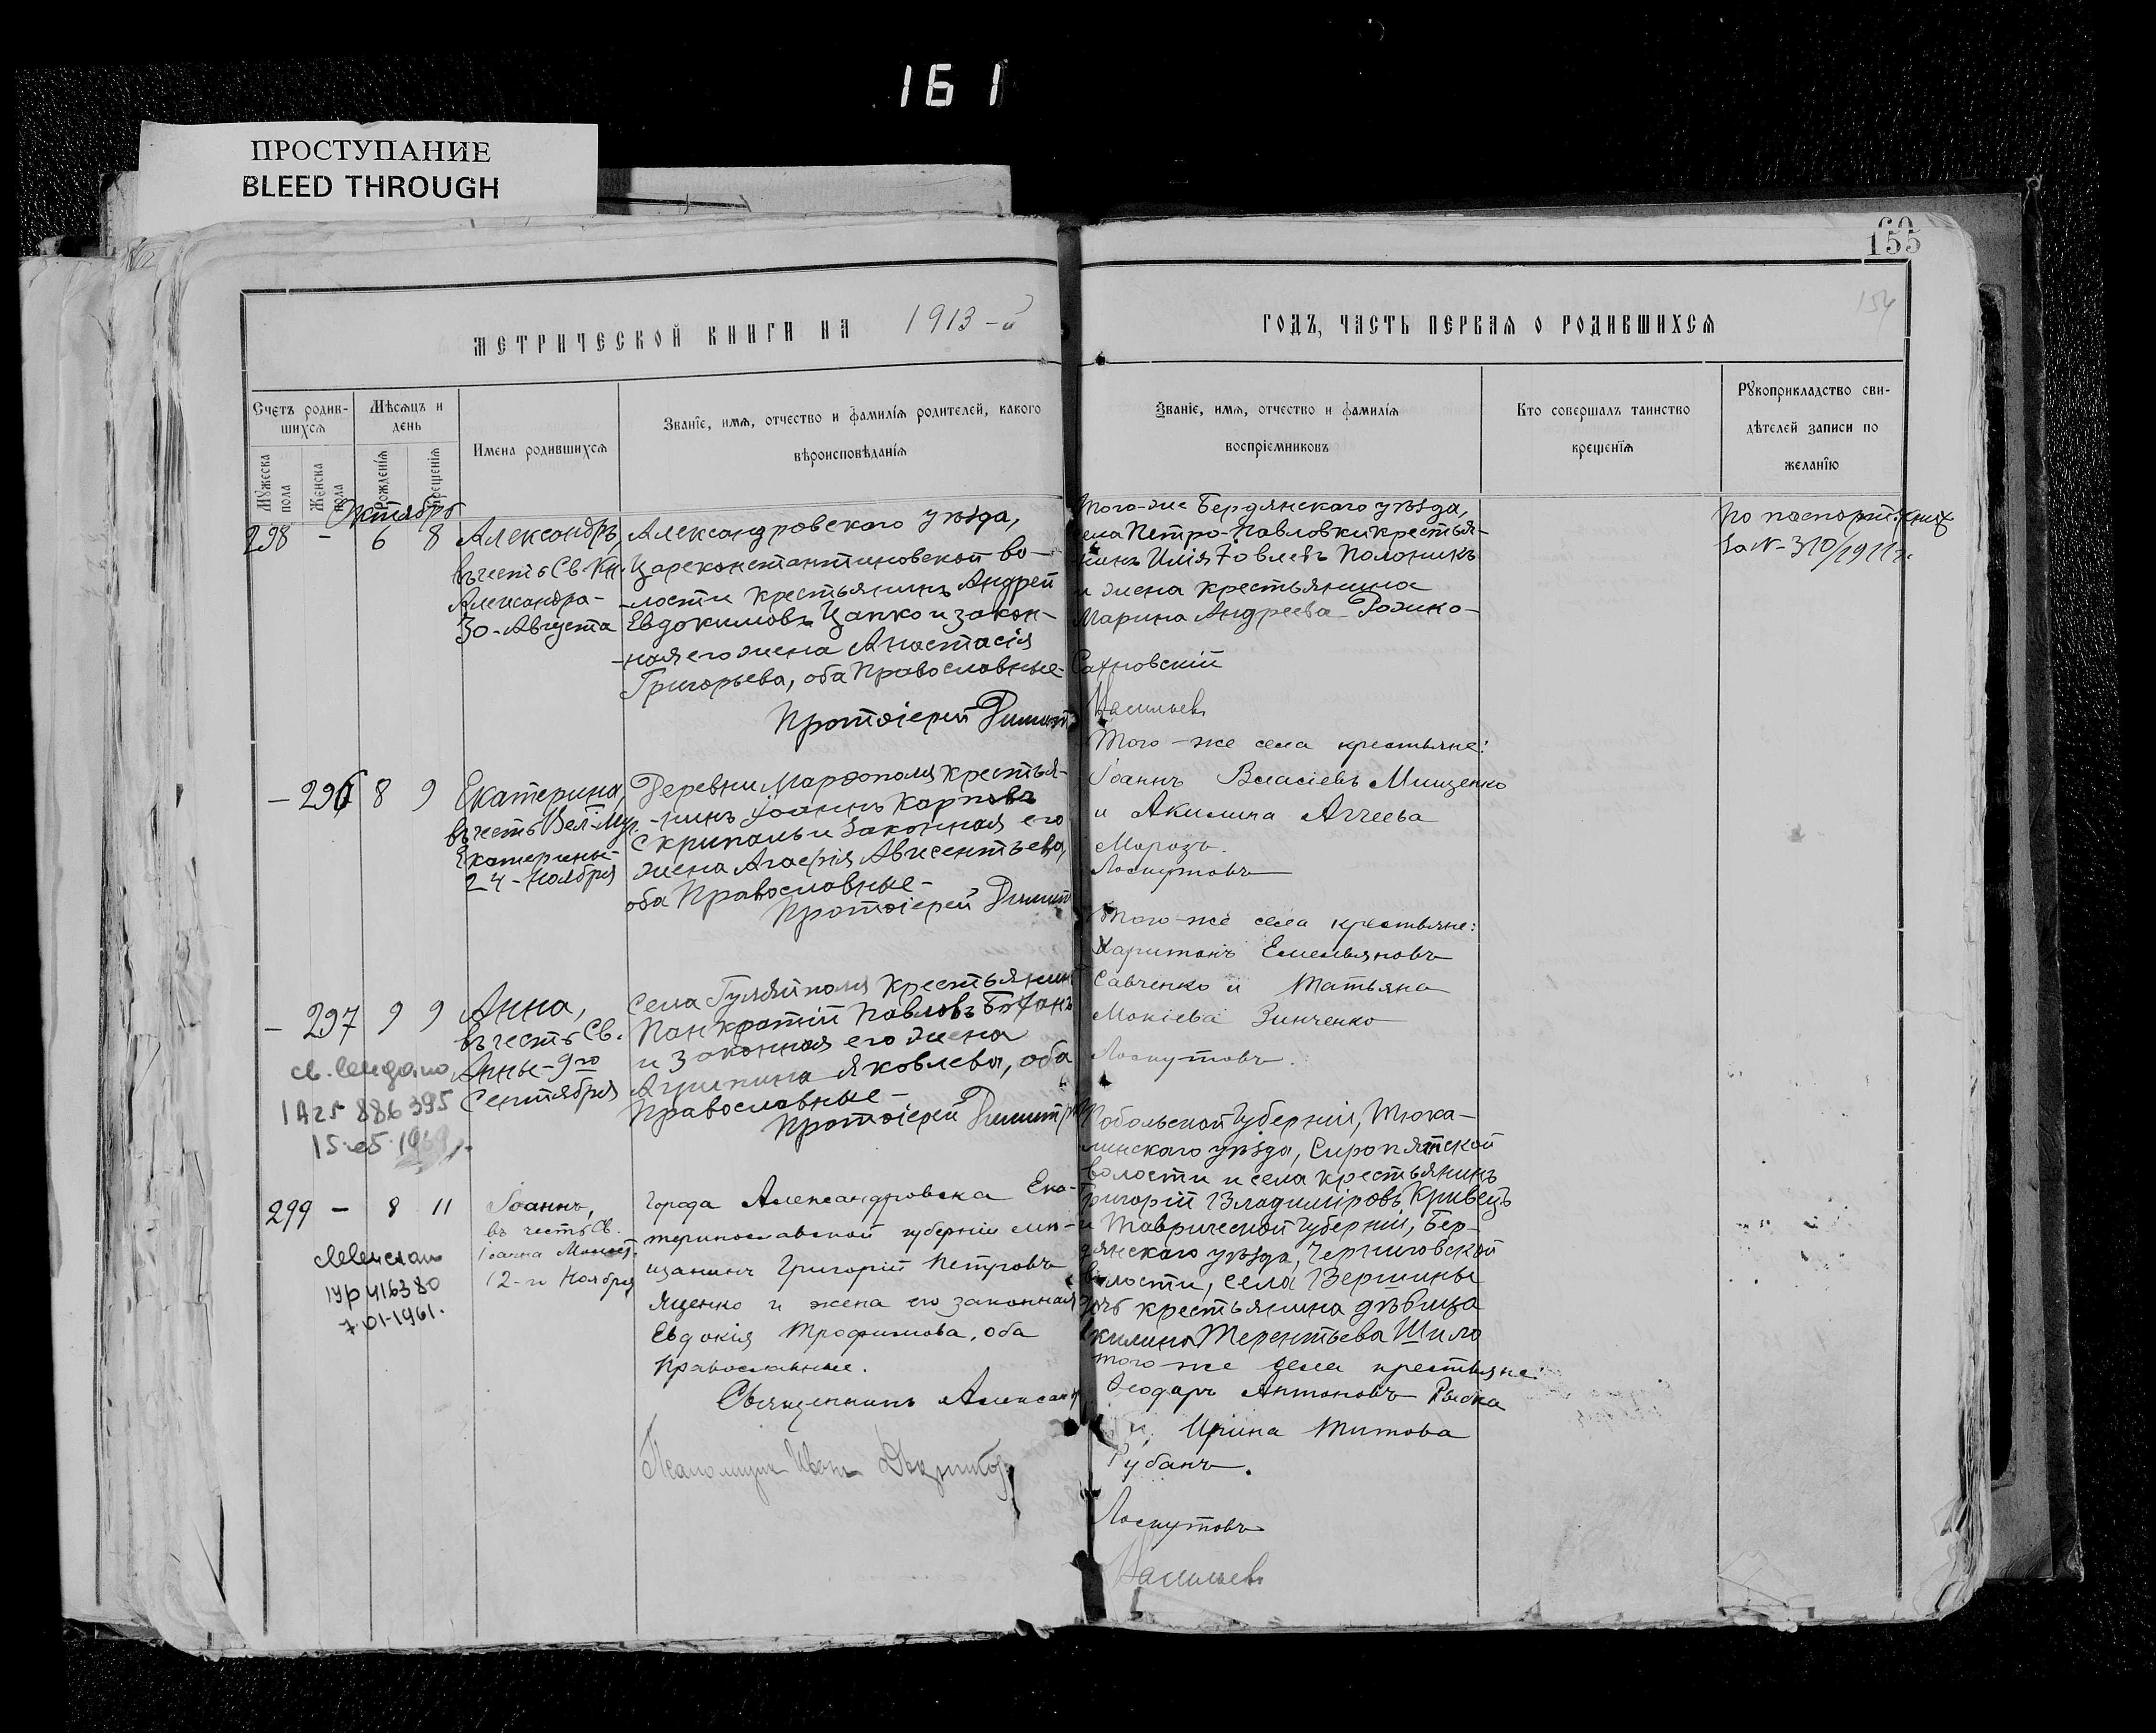 161
ПРОСТУПАНИЕ
BLEED THROUGH
155
154
МЕТРИЧЕСКОЙ КНИГИ НА 1913-й
ГОДЪ, ЧАСТЬ ПЕРВАЯ О РОДИВШИХСЯ
Счетъ родив-
шихся
Мѣсяцъ и
день
Мужеска пола
Женска пола
Рожденія
Крещенія
Имена родившихся
Званіе, имя, отчество и фамилія родителей, какого
вѣроисповѣданія
Званіе, имя, отчество и фамилія
воспріемниковъ
Кто совершалъ таинство
крещенія
Рукоприкладство сви-
дѣтелей записи по
желанію
Октябрь
298 - 6 8
Александръ,
въ честь Св. Кн.
Александра-
30-Августа
Александровскаго уѣзда,
Цареконстантиновской во-
-лости крестьянинъ Андрей
Евдокимовъ Цапко и закон-
-ная его жена Анастасія
Григорьева, оба Православные-
Протоіерей Димит
Того-же Бердянскаго уѣзда,
села Петро-Павловки крестья-
нинъ Илія Іовлевъ Полоникъ
и жена крестьянина
Марина Андреева Рожко-
Сахновскій
Васильевъ
По паспортн. книж
за N-310/1911 г.
- 296 8 9
Екатерина,
въ честь Вел-Муч.
Екатерины-
24-Ноября
Деревни Марфополя крестья-
-нинъ Іоаннъ Карповъ
Скрипаль и законная его
жена Агафія Авксентьева,
оба Православные-
Протоіерей Димит
Того-же села крестьяне:
Іоаннъ Власіевъ Мищенко
и Акилина Аггеева
Морозъ.
Лоскутовъ
- 297 9 9
Анна,
въ честь Св.
Анны-9го
Сентября
св.
1969
Села Гуляйполя крестьянинъ
Панкратій Павловъ Боханъ
и законная его жена
Агрипина Яковлева, оба
Православные-
Протоіерей Димитр
Того-же села крестьяне:
Харитонъ Емельяновъ
Савченко и Татьяна
Мокіева Зинченко
Лоскутовъ.
299 - 8 11
Іоаннъ,
въ честь Св.
Іоанна Милост.
12-го Ноября
416380
7.01-1961.
Города Александровска Ека-
теринославской губерніи мѣ-
щанинъ Григорій Петровъ
Яценко и жена его законная
Евдокія Трофимова, оба
Православные.
Священникъ Александ
Псаломщик Иван
Тобольской губерніи, Тюка-
линскаго уѣзда, Сыропятской
волости и села крестьянинъ
Григорій Владиміровъ Кривецъ
и Таврической губерніи, Бер-
дянскаго уѣзда, Черниговской
волости, села Вершины
дочь крестьянина дѣвица
Акилина Терентьева Шило
того-же села крестьяне:
Ѳеодоръ Антоновъ Рыбка
и Ирина Титова
Рубанъ.
Лоскутовъ
Васильевъ